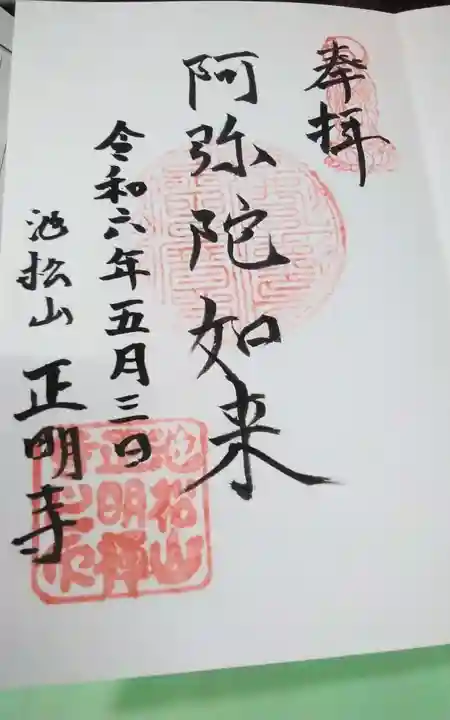 奉拝
阿弥陀如来
令和六年五月三日
池松山 正明寺
池松山
正明禅
寺之印